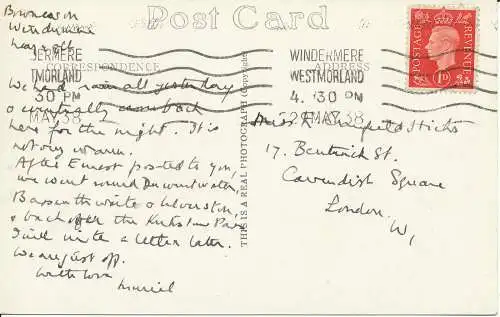 Post Card
CORRESPONDENCE
ADDRESS
POSTAGE
REVENUE
1D
WINDERMERE
WESTMORLAND
4. 30 PM
MAY 38
ERMERE
TMORLAND
30 PM
MAY 38
THIS IS A REAL PHOTOGRAPH
Bowness on
Windermere
We had rain all yesterday
& eventually came back
here for the night. It is
not very warm.
After I posted to you,
we went round Derwentwater,
Bassenthwaite &
& back over the Kirkstone Pass
I will write a letter later.
We are just off.
With love
Muriel
Miss
17, Bentinck St.
Cavendish Square
London.
W1